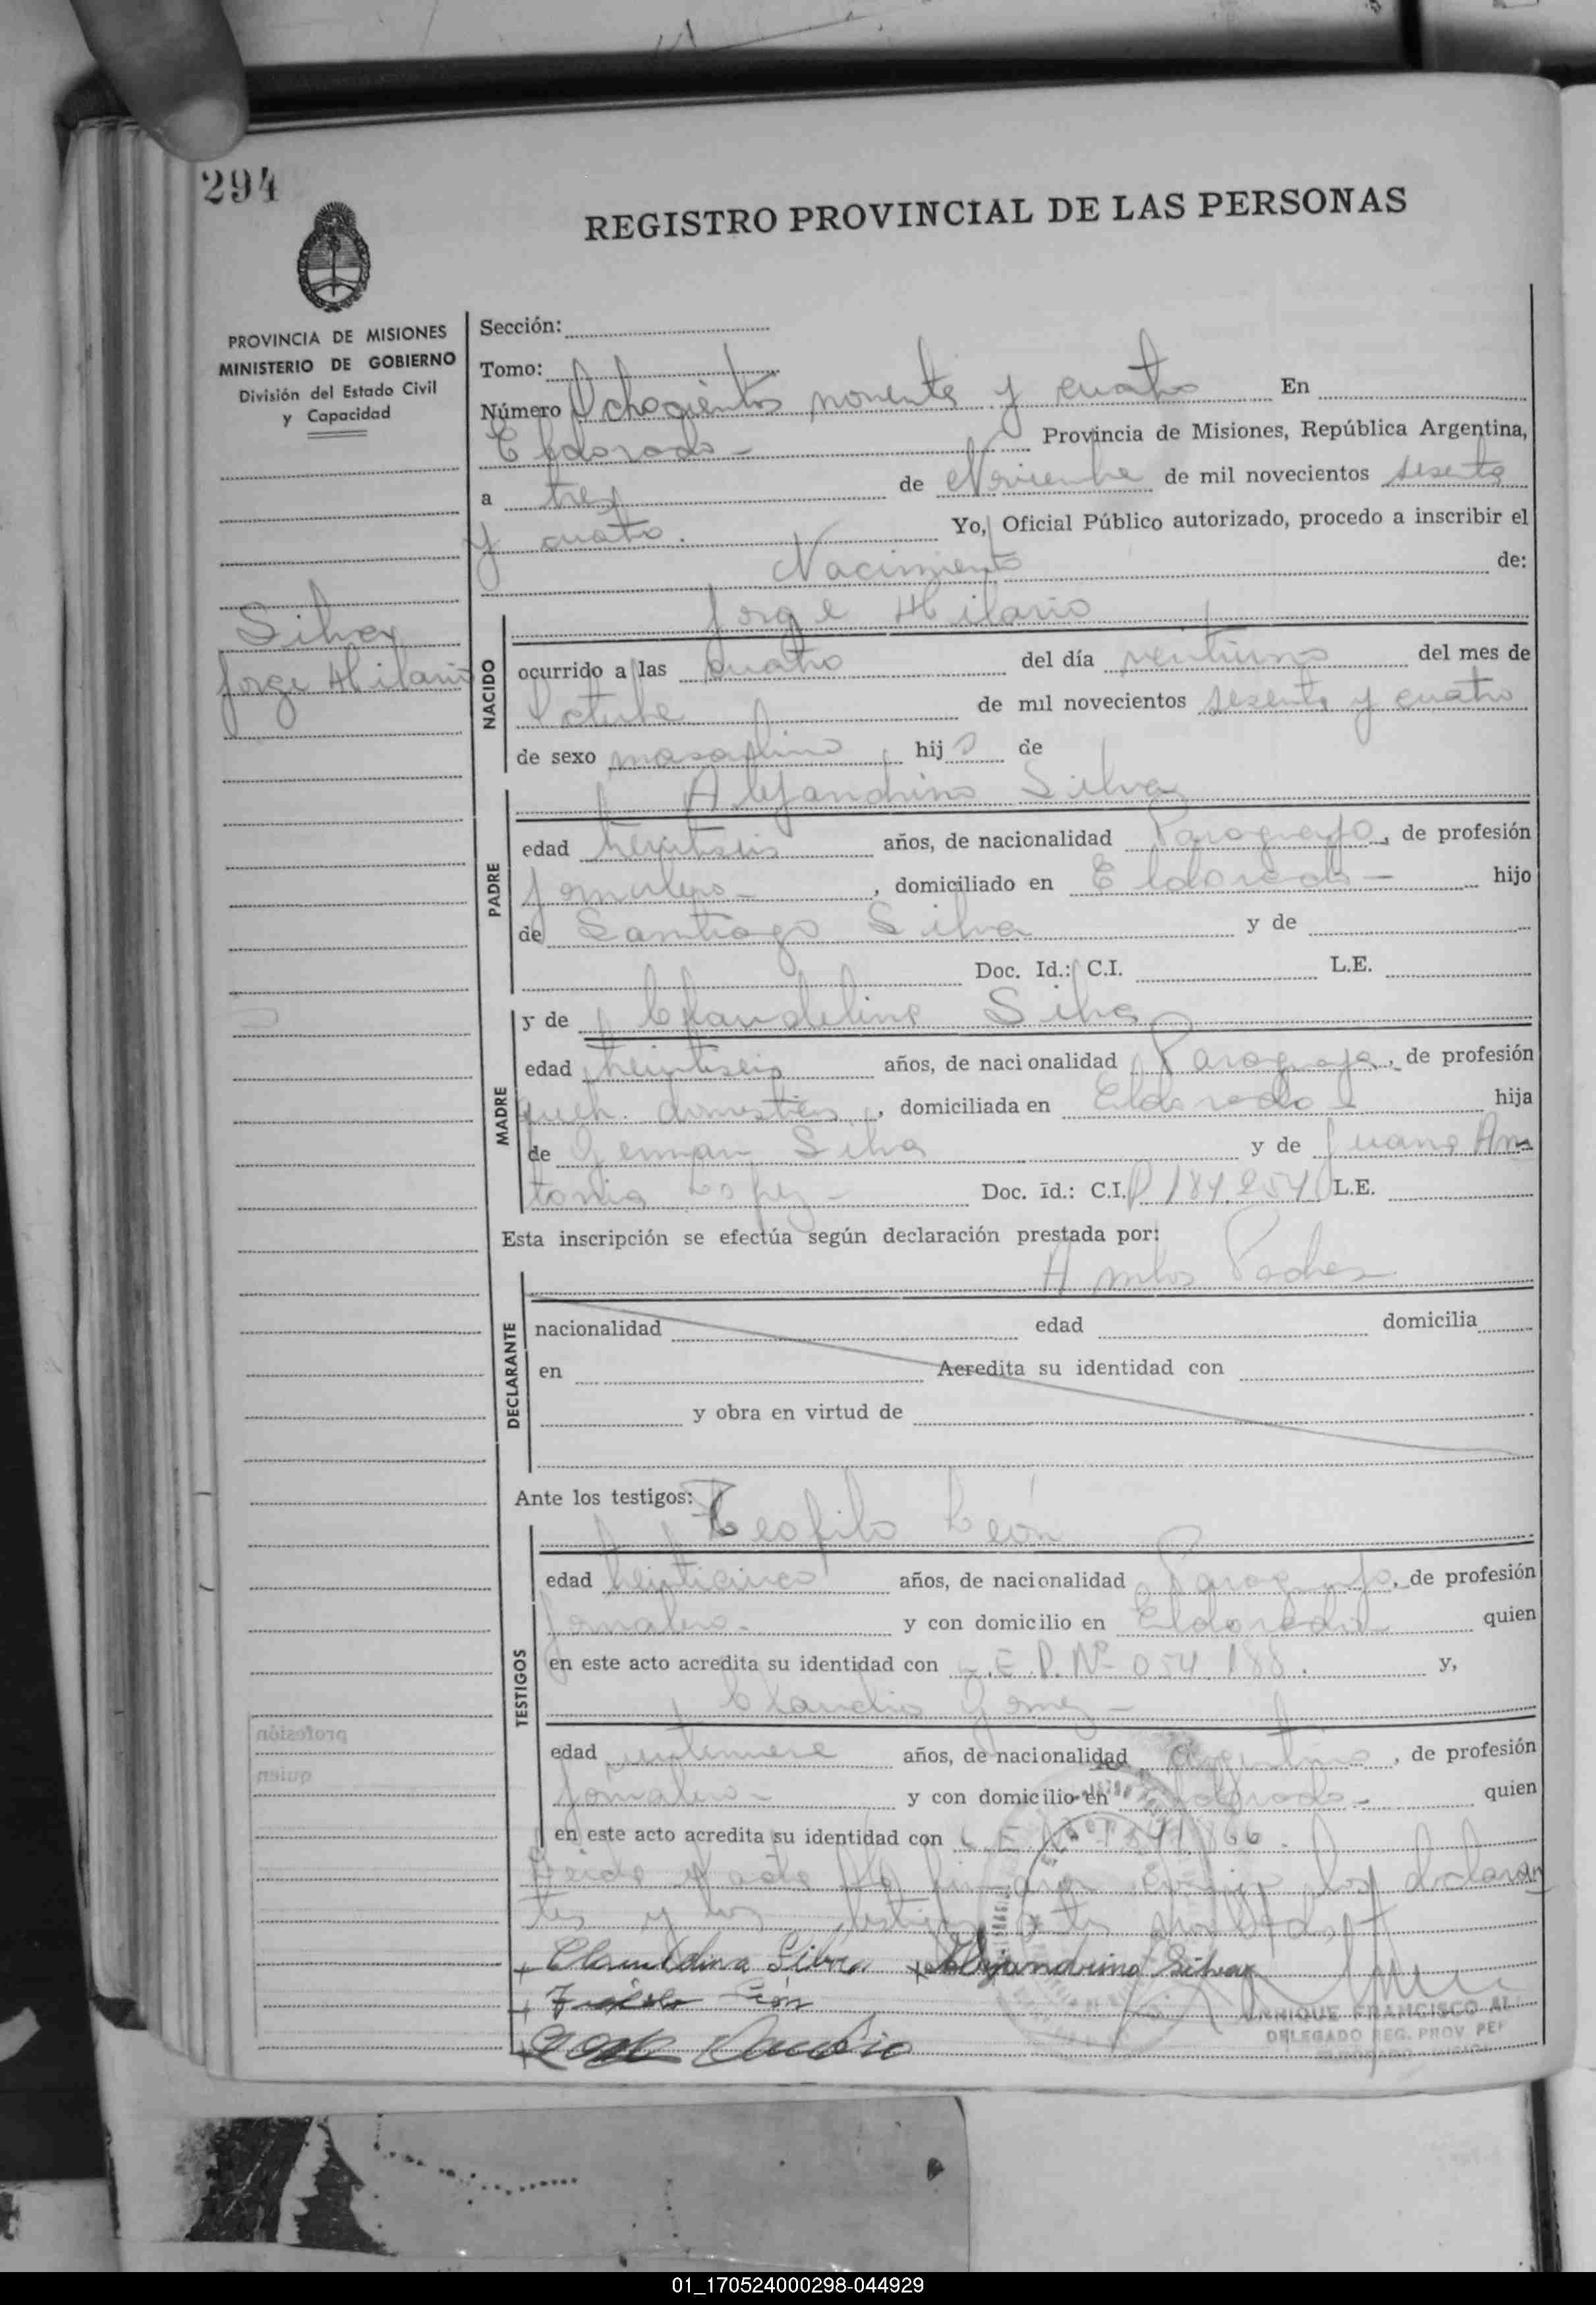 294
REGISTRO PROVINCIAL DE LAS PERSONAS
PROVINCIA DE MISIONES
MINISTERIO DE GOBIERNO
División del Estado Civil
y Capacidad
Silva
Jorge Hilario
Sección:
Tomo:
Número Ochocientos noventa y cuatro En
Eldorado - Provincia de Misiones, República Argentina,
a tres de Noviembre de mil novecientos sesenta
y cuatro. Yo, Oficial Público autorizado, procedo a inscribir el
Nacimiento de:
Jorge Hilario
NACIDO
ocurrido a las cuatro del día veintiuno del mes de
Octubre de mil novecientos sesenta y cuatro
de sexo masculino, hijo de
Alejandrino Silva
PADRE
edad treintiseis años, de nacionalidad Paraguayo, de profesión
jornalero -, domiciliado en Eldorado - hijo
de Santiago Silva y de
Doc. Id.: C.I. L.E.
MADRE
y de Claudelina Silva
edad treintiseis años, de naci onalidad Paraguaya, de profesión
queh. domesticos, domiciliada en Eldorado - hija
de German Silva y de Juana An
tonia Lopez - Doc. Id.: C.I. P 184.254 L.E.
Esta inscripción se efectúa según declaración prestada por:
Ambos Padres
DECLARANTE
nacionalidad edad domicilia
en Acredita su identidad con
y obra en virtud de
Ante los testigos:
Teofilo León
TESTIGOS
edad treinticinco años, de nacionalidad Paraguayo, de profesión
jornalero. y con domicilio en Eldorado quien
en este acto acredita su identidad con C.E.P. Nº 054.188. y,
Claudio Gomez -
edad años, de nacionalidad Argentino, de profesión
jornalero - y con domicilio en Eldorado - quien
en este acto acredita su identidad con
Leida el acta la firman conmigo los declaran
tes y los testigos
Claudelina Silva Alejandrino Silva
León
Claudio
ENRIQUE FRANCISCO AL
DELEGADO REG. PROV. PER
profesión
quien
01_170524000298-044929